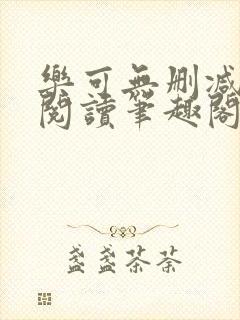 樂可無刪減
閱讀筆趣閣
盞盞茶茶